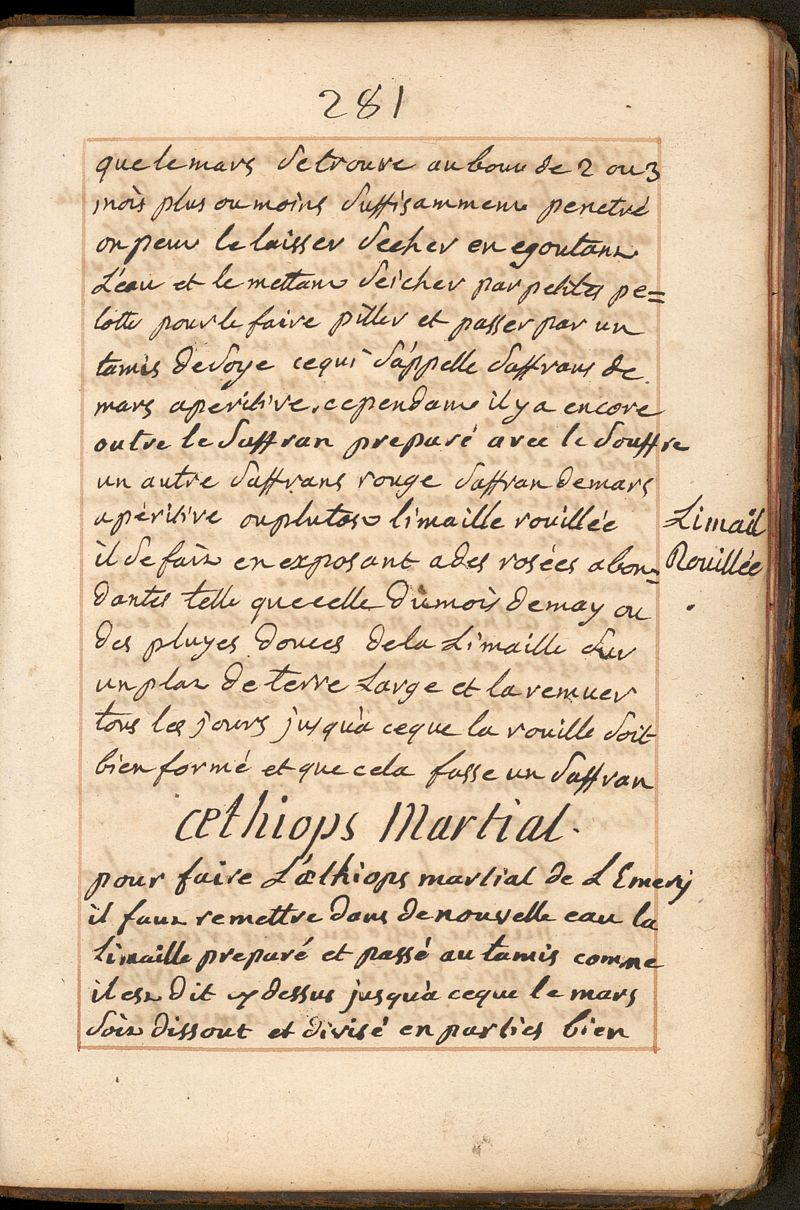 281
que le mars se trouve au bout de 2 ou 3
mois plus ou moins suffisamment penetré
on peut le laisser secher en egoutant
L'eau et le mettant seicher par petites pe=
lotte pour le faire piller et passer par un
tamis de soye ce qui s'appelle saffrans de
mars aperitive. cependant il y a encore
outre le saffran preparé avec le souffre
un autre saffrans rouge saffran de mars
apéritive ou plutost limaille rouillée
Limail
Rouillée
il se fait en exposant a des rosées abon=
dantes telle que celle du mois de may ou
des pluyes douces de la Limaille sur
un plat de terre Large et la remuer
tous les jours jusqu'a ce que la rouille soit
bien formé et que cela fasse un saffran
œthiops Martial.
pour faire L'æthiops martial de L'Emery
il faut remettre dans de nouvelle eau la
Limaille preparé et passé au tamis comme
il est dit cy dessus jusqu'a ce que le mars
soit dissout et divisé en parties bien